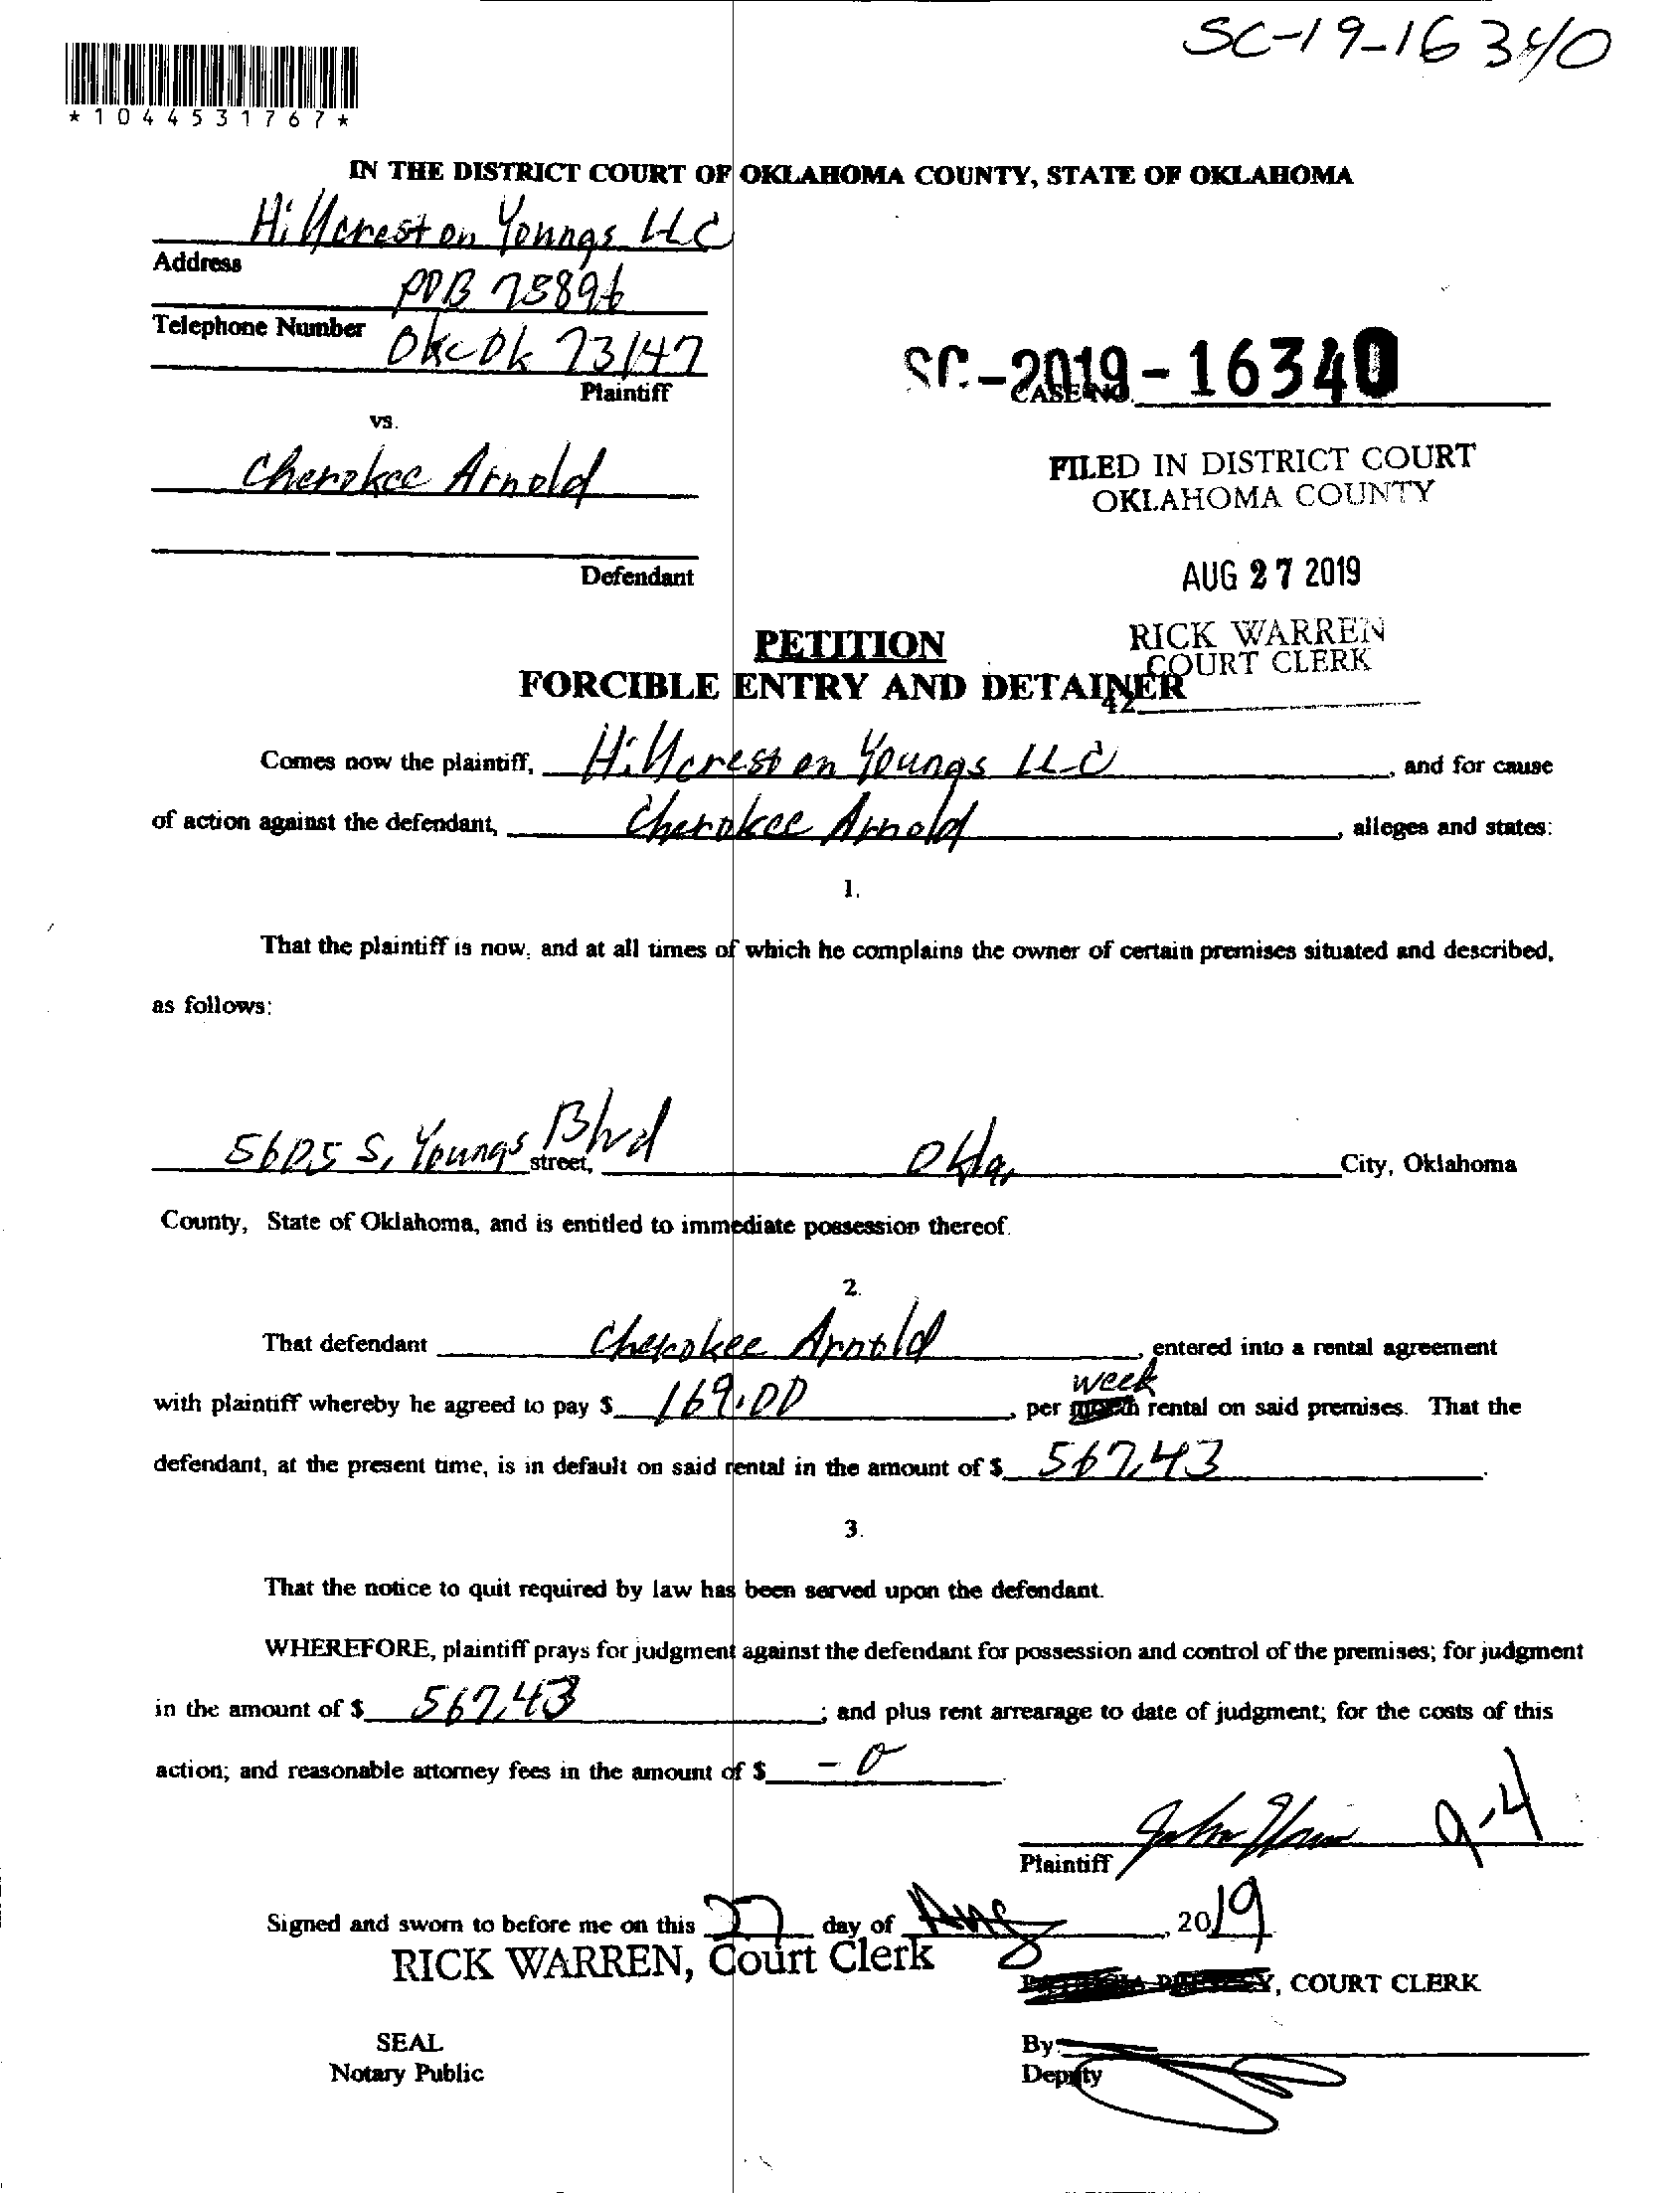 SC-19-16340
*1044531767*
IN THE DISTRICT COURT OF OKLAHOMA COUNTY, STATE OF OKLAHOMA
Hillcrest on Youngs LLC
Address
POB 75896
Telephone Number
OKC OK 73147
Plaintiff
SC-2019-16340
CASE NO.
vs.
Cherokee Arnold
FILED IN DISTRICT COURT
OKLAHOMA COUNTY
Defendant
AUG 27 2019
RICK WARREN
COURT CLERK
PETITION
FORCIBLE ENTRY AND DETAINER
42
Comes now the plaintiff, Hillcrest on Youngs LLC, and for cause
of action against the defendant, Cherokee Arnold, alleges and states:
1.
That the plaintiff is now, and at all times of which he complains the owner of certain premises situated and described,
as follows:
5605 S. Youngs Blvd street, Okla, City, Oklahoma
County, State of Oklahoma, and is entitled to immediate possession thereof.
2.
That defendant Cherokee Arnold, entered into a rental agreement
with plaintiff whereby he agreed to pay $ 169.00, per week rental on said premises. That the
defendant, at the present time, is in default on said rental in the amount of $ 567.43.
3.
That the notice to quit required by law has been served upon the defendant.
WHEREFORE, plaintiff prays for judgment against the defendant for possession and control of the premises; for judgment
in the amount of $ 567.43; and plus rent arrearage to date of judgment; for the costs of this
action; and reasonable attorney fees in the amount of $ -0.
9-4
Plaintiff
Signed and sworn to before me on this 27 day of Aug, 2019
RICK WARREN, Court Clerk
, COURT CLERK
SEAL
Notary Public
By:
Deputy